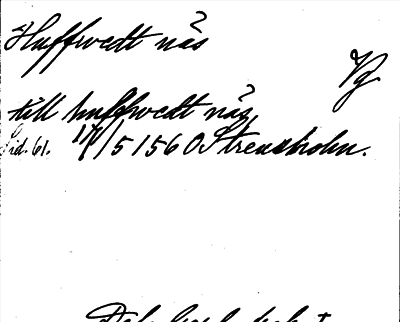 Huffwedt nås
Vg
till huffwedt nås
Sid. 61. 17/5 1560 Strensholm.